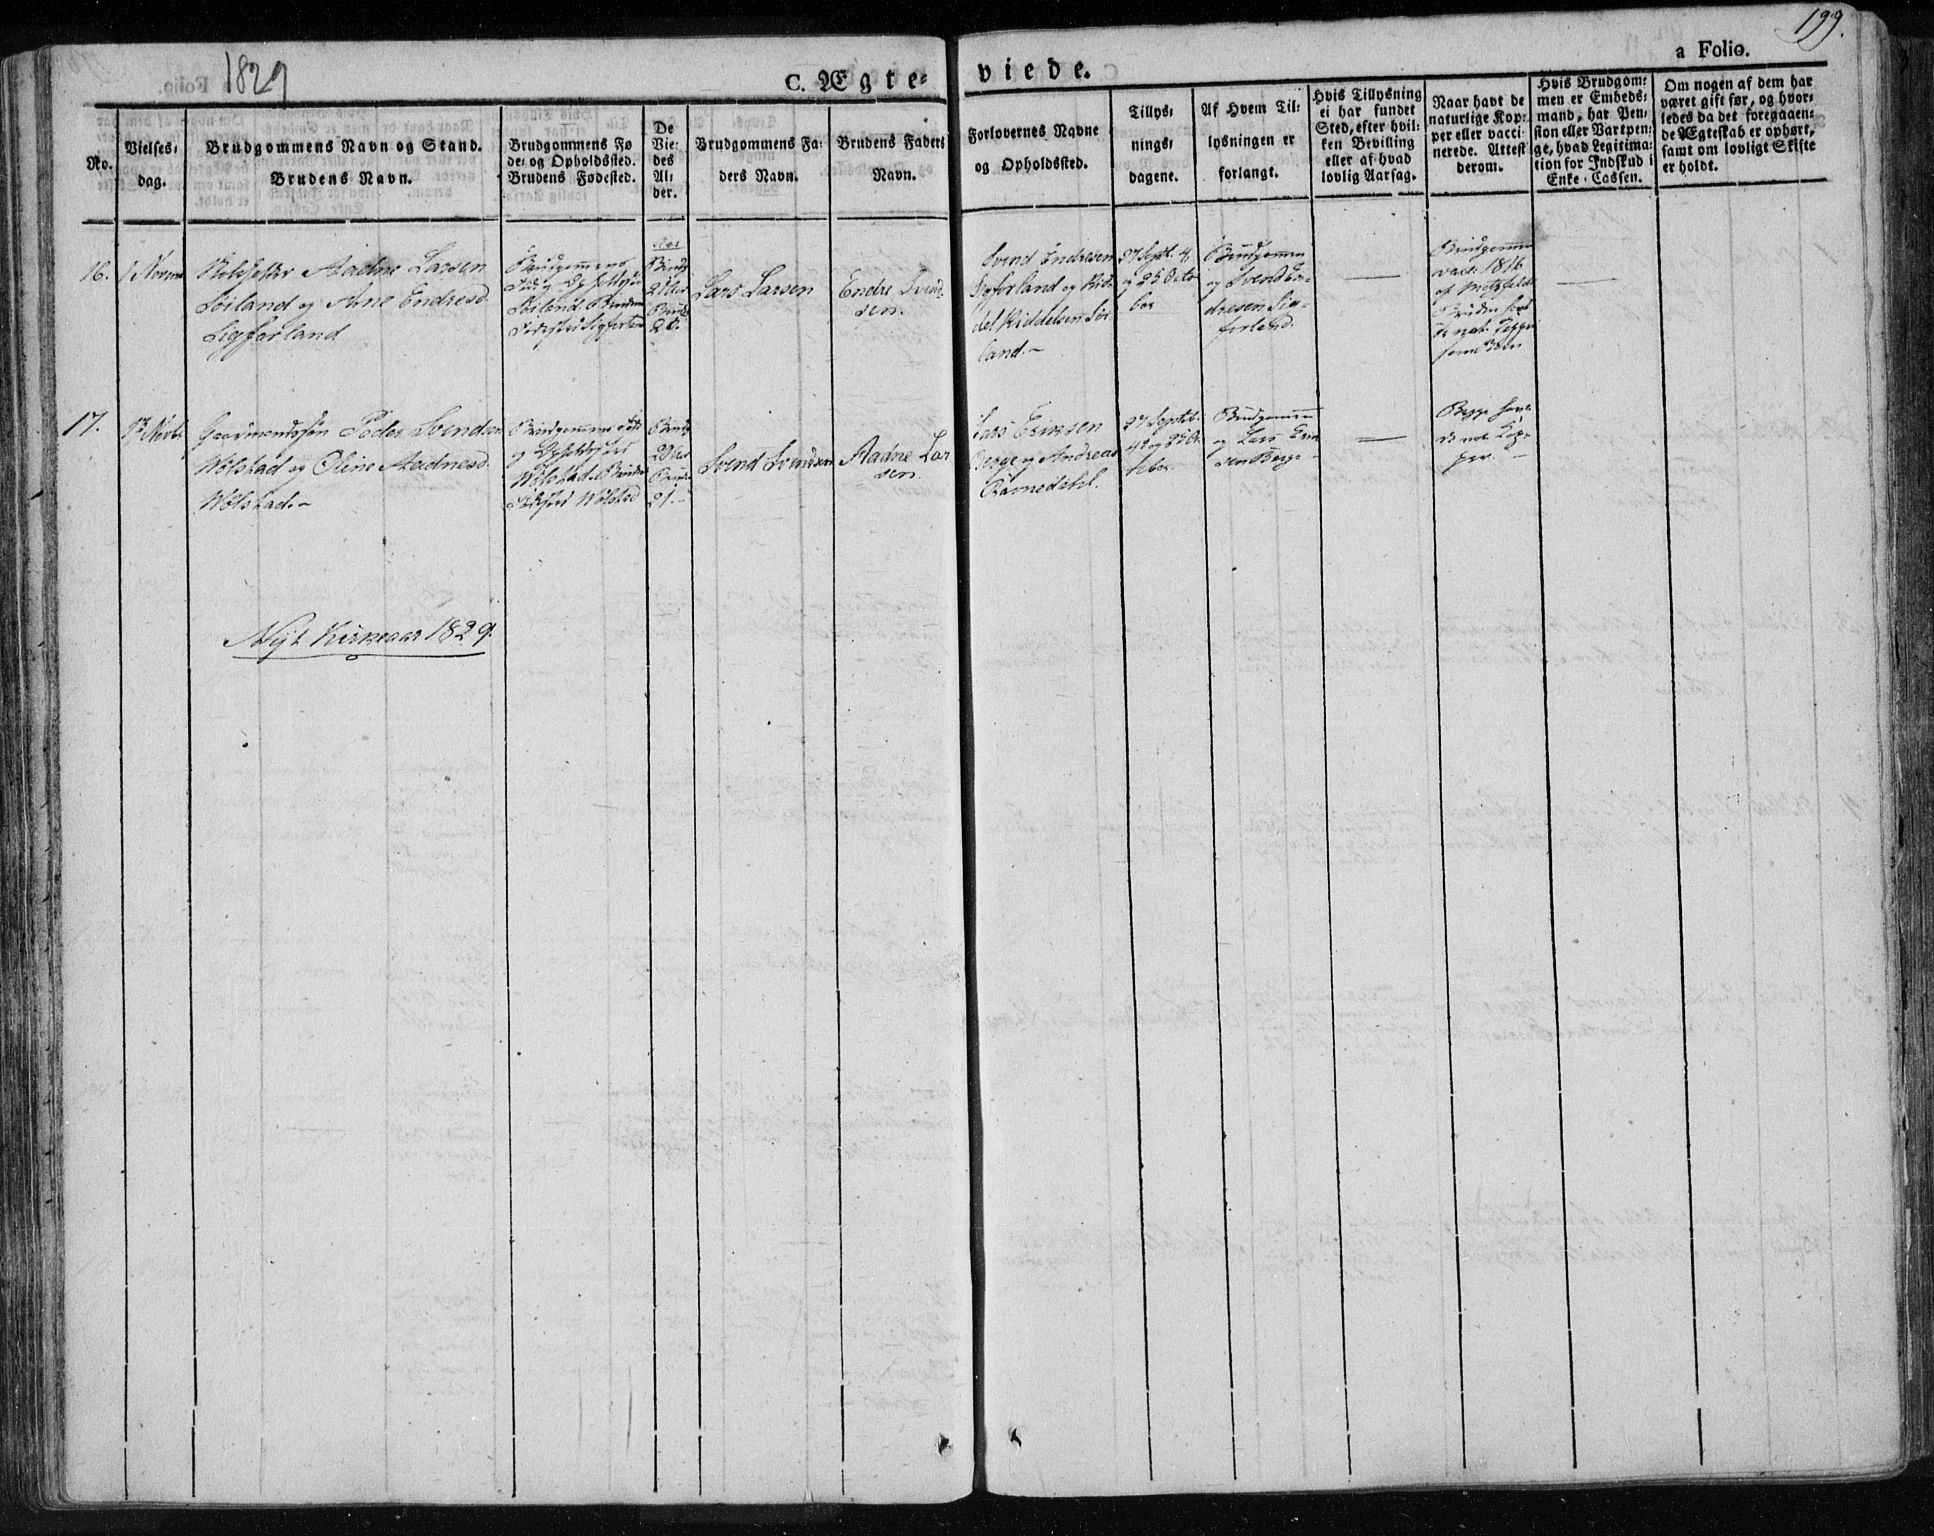 199.
a Folio.
1829
C. Ægte-
viede.
No.
Vielses-
dag.
Brudgommens Navn og Stand.
Brudens Navn.
Brudgommens Fø
de- og Opholdssted.
Brudens Fødested.
De
Vie-
des
Al-
der.
Brudgommens Fa-
ders Navn.
Brudens Faders
Navn.
Forlovernes Navne
og Opholdssted.
Tillys-
nings-
dagene.
Af Hvem Til-
lysningen er
forlangt.
Hvis Tillysning
ei har fundet
Sted, efter hvil-
ken Bevilling
eller af hvad
lovlig Aarsag.
Naar havt de
naturlige Kop-
per eller vacci-
nerede. Attest
derom.
Hvis Brudgom-
men er Embeds-
mand, har Pen-
sion eller Vartpen-
ge, hvad Legitima-
tion for Indskud i
Enke-Cassen.
Om nogen af dem har
været gift før, og hvor-
ledes da det foregaaen-
de Ægteskab er ophørt,
samt om lovligt Skifte
er holdt.
16.
Aadne Larsen
Soiland og Ane Endresd.
Sigforland
Brudgommens
Soiland Brudens
Lars Larsen
Endre Svend
sen.
Svend Endresen
Sigforland og Rid-
del Riddelsen Soi
land.-
27 Sept. 4
og 25 Octo
ber
Brudgommen
og Svend En-
dresen Sig-
forland.
Brudgommen
vacc. 1816
17.
Gaardmandssøn Peder Svendsen
Wolstad og Oline Aadnesd.
Wolstad.-
Brudgommens
Wolstad. Brudens
Wolstad
21.-
Svend Svendsen
Aadne Lar
sen.
Lars Eriksen
Berge og Andreas
Ravnedahl.
27 Septbr.
4de og 25 Oc
tober
Brudgommen
og Lars Erik
sen Berge-
Begge hav
de nat. Kop-
per.-
Nyt Kirkeaar 1829.